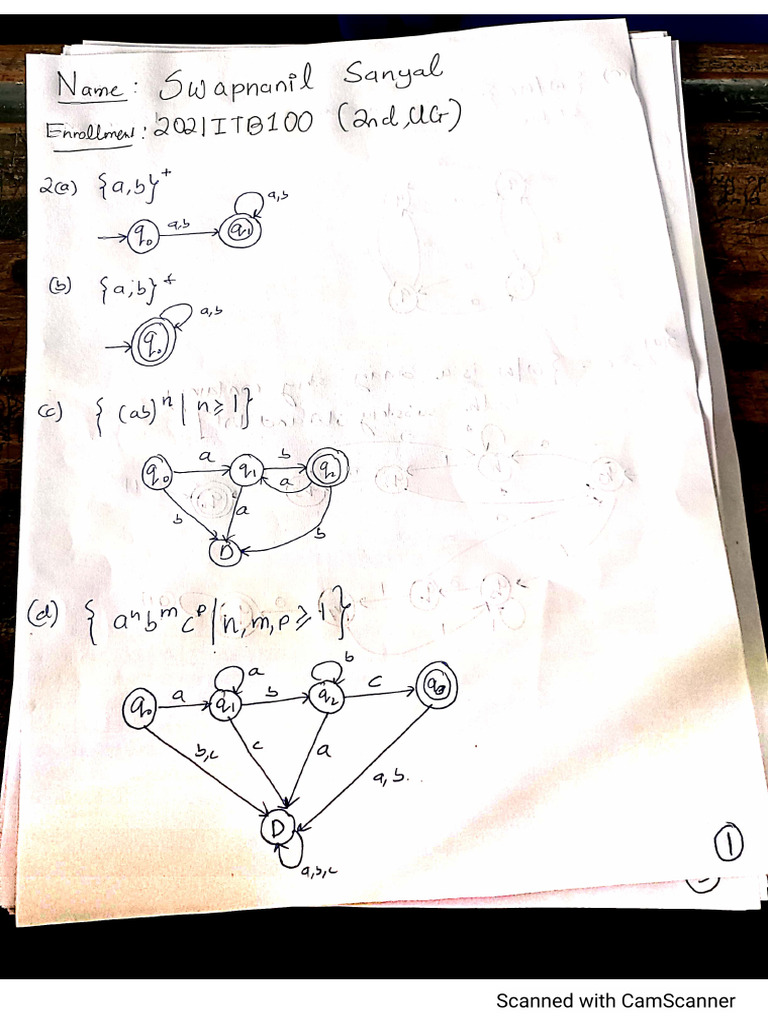 Name: Swapnanil Sanyal
Enrollment: 2021ITB100 (2nd, UG)
2(a) {a,b}⁺
a,b
a,b
q₀
q₁
(b) {a,b}*
a,b
q₀
(c) {(ab)ⁿ | n≥1}
a b
q₀ q₁ a q₂
b a b
D
(d) {aⁿbᵐcᵖ | n,m,p≥1}
a b
q₀ a q₁ b q₂ c q₃
b,c c a a,b
D
a,b,c
1
Scanned with CamScanner